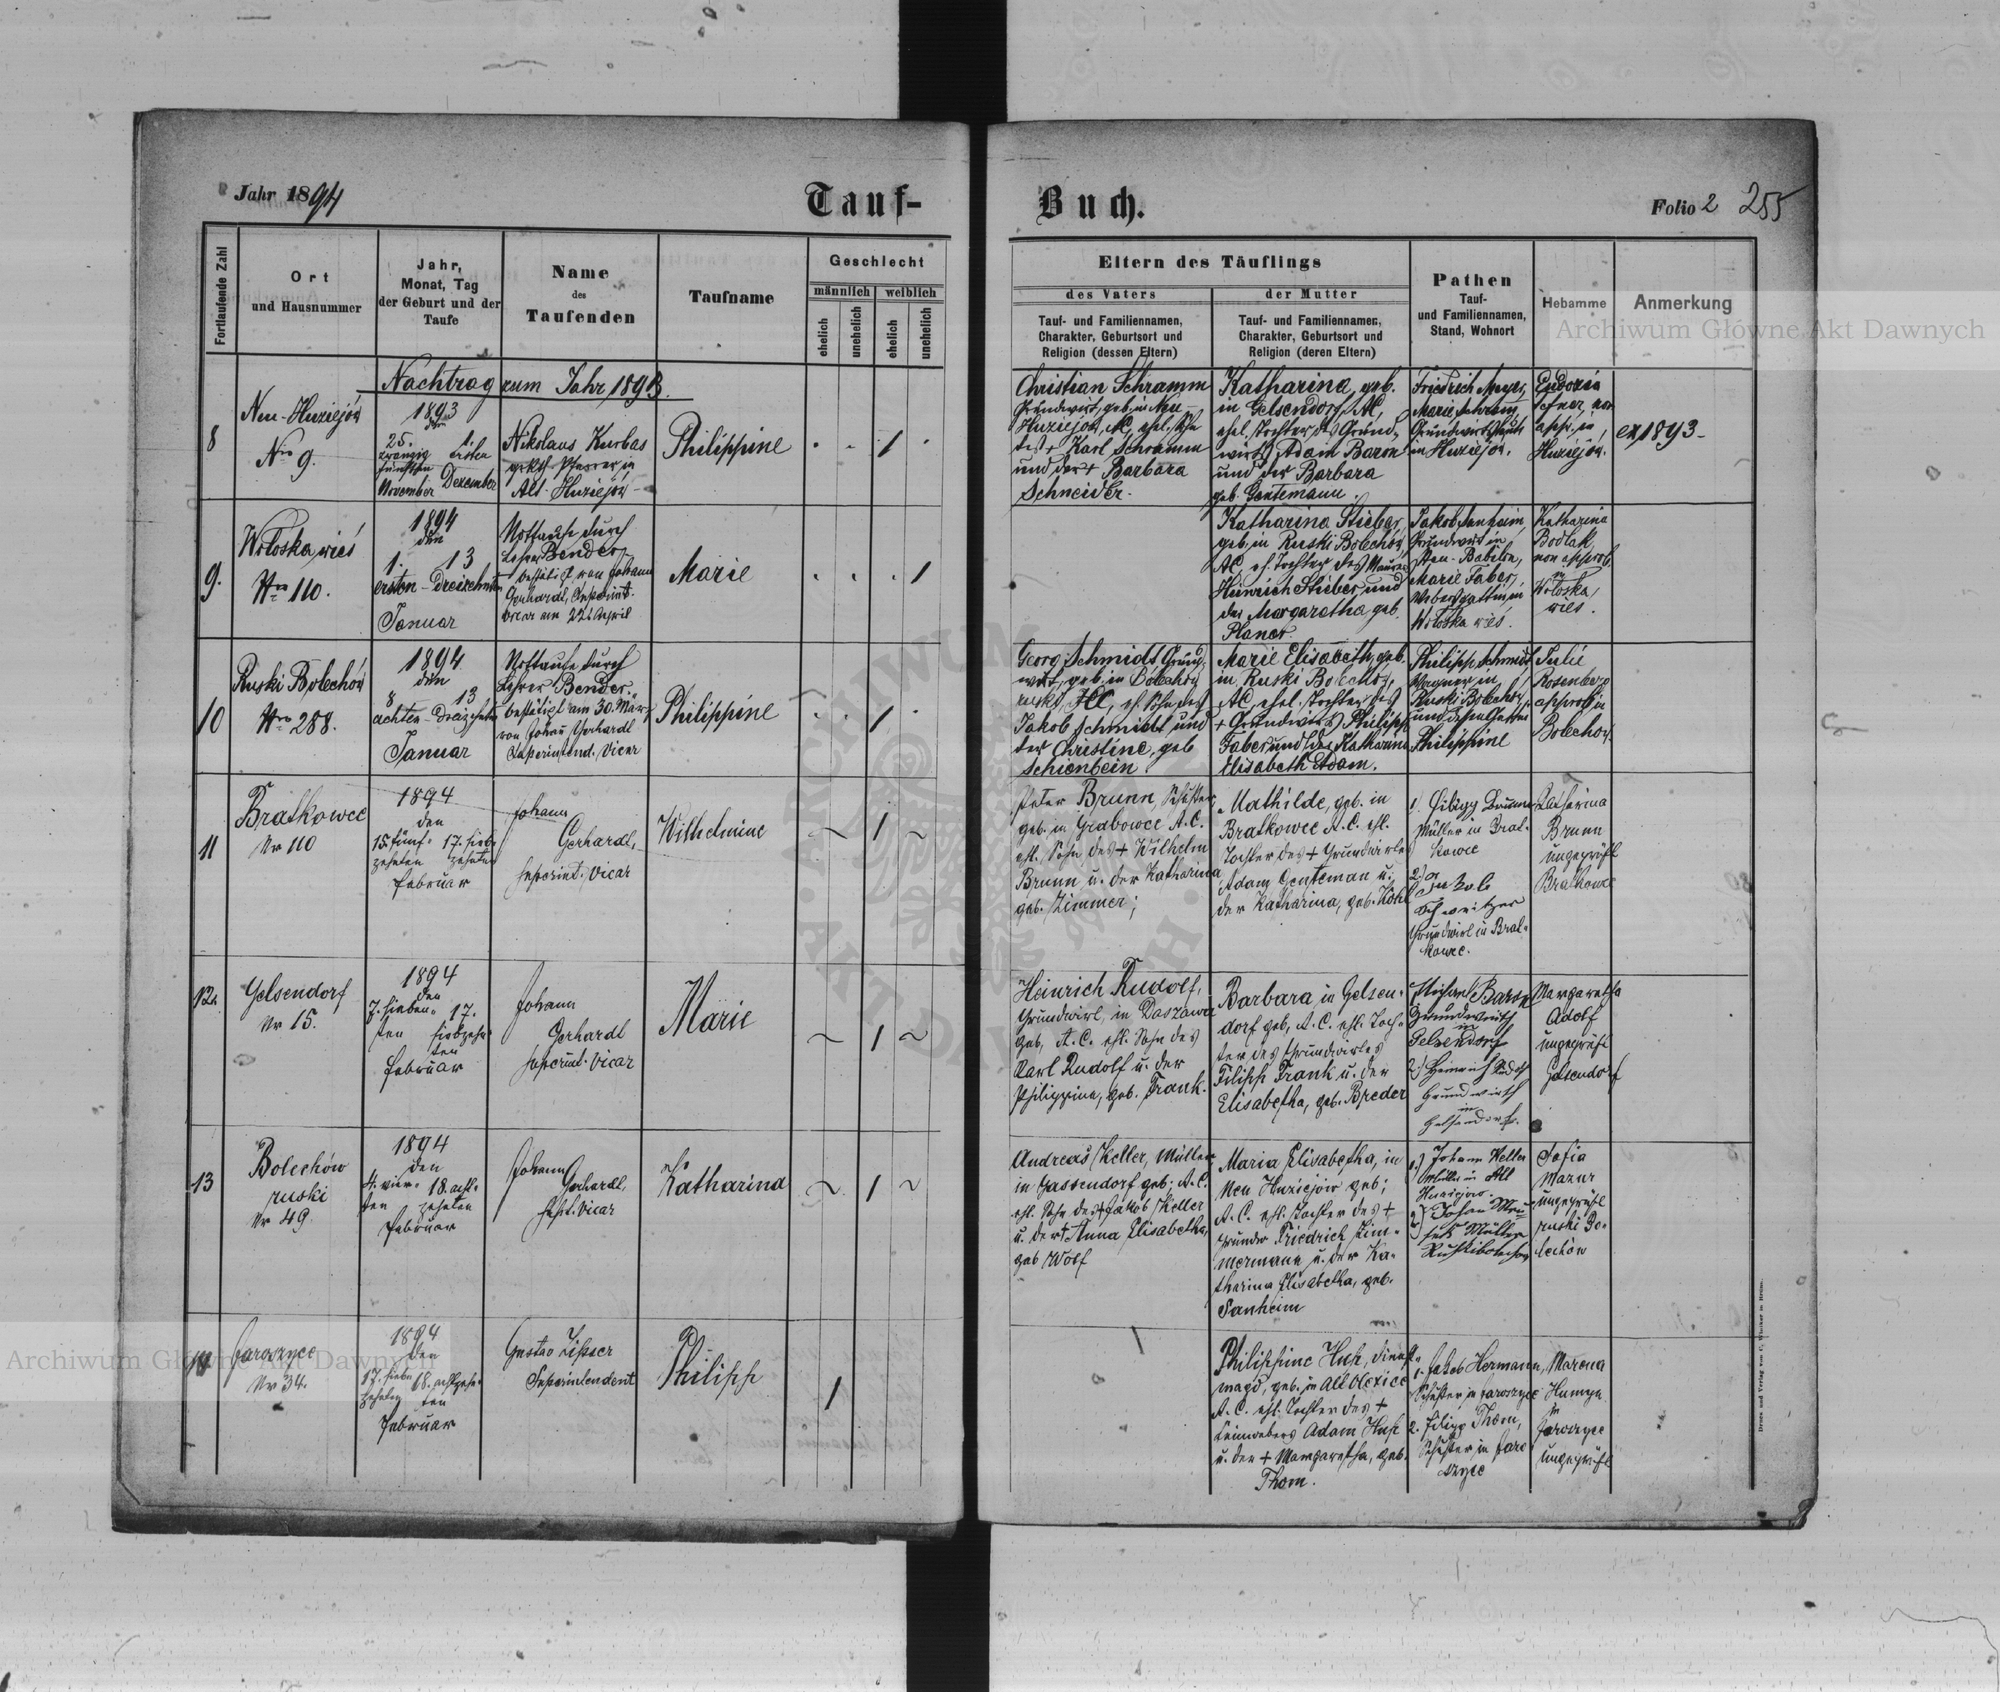 Jahr 1894
Tauf-
Buch.
Folio 2 255
Fortlaufende Zahl
Ort
und Hausnummer
Jahr,
Monat, Tag
der Geburt und der
Taufe
Name
des
Taufenden
Taufname
Geschlecht
männlich
weiblich
ehelich
unehelich
ehelich
unehelich
Eltern des Täuflings
des Vaters
Tauf- und Familiennamen,
Charakter, Geburtsort und
Religion (dessen Eltern)
der Mutter
Tauf- und Familiennamen,
Charakter, Geburtsort und
Religion (deren Eltern)
Pathen
Tauf-
und Familiennamen,
Stand, Wohnort
Hebamme
Anmerkung
Archiwum Główne Akt Dawnych
Nachtrag zum Jahr 1893.
8
Neu-Huziejów
Nro 9.
1893
den
25. 1.
zwanzig ersten
fünften
November Dezember
Nikolaus Kurbas
grkth. Pfarrer in
Alt-Huziejów
Philippine
1
Christian Schramm
Grundwirt, geb. in Neu-
Huziejów, AC, ehel. Sohn
des + Karl Schramm
und der + Barbara
Schneider.
Katharina, geb.
in Gelsendorf, AC,
ehel. Tochter des Grund-
wirts Adam Baron
und der Barbara
geb. Gentemann.
Friedrich Mayer,
Marie Schramm,
Grundwirtsleute
in Huziejów.
Eudozia
non
app. in
Huziejów.
ex 1893
9.
Wołoska wieś
Nro 110.
1894
den
1. 13
ersten - Dreizehnten
Januar
Nottaufe durch
Lehrer Bender,
bestätigt von Johann
Gerhardt, Superint.
Vicar am 22. April
Marie
1
Katharina Stieber,
geb. in Ruski Bolechów,
AC, eh. Tochter des Maurers
Heinrich Stieber und
der Margaretha geb.
Planer.
Jakob Sanheim,
Grundwirt in
Neu-Babilon,
Marie Faber,
Webersgattin in
Wołoska wieś.
Katharina
Bodlak
non approb.
in
Wołoska
wieś.
10
Ruski Bolechów
Nro 288.
1894
den
8 13
achten - Dreizehnten
Januar
Nottaufe durch
Lehrer Bender,
bestätigt am 30. März
von Johann Gerhardt
Superintend. Vicar
Philippine
1
Georg Schmidt, Grund-
wirt, geb. in Bolechów
ruski, AC, eh. Sohn des
Jakob Schmidt und
der Christine, geb
Schienbein
Marie Elisabeth, geb.
in Ruski Bolechów,
AC, ehel. Tochter des
+ Grundwirts Philipp
Faber und der Katharina
Elisabeth Adam.
Philipp Schmidt,
Wagner in
Ruski Bolechów
und dessen Gattin
Philippine
Julie
Rosenberg
approb. in
Bolechów.
11
Bratkowce
Nr 110
1894
den
15. fünf- 17. sieb-
zehnten zehnten
Februar
Johann
Gerhardt,
Superint. Vicar
Wilhelmine
1
Peter Brunn, Schuster,
geb. in Grabowce A.C.
ehl. Sohn des + Wilhelm
Brunn u. der Katharina
geb. Zimmer;
Mathilde, geb. in
Bratkowce A.C. ehl.
Tochter des + Grundwirtes
Adam Genteman u.
der Katharina, geb. Köhl
1) Filipp Brunn
Müller in Brat-
kowce
2) Jakob
Schweitzer
Grundwirt in Brat-
kowce.
Katharina
Brunn
ungeprüft
Bratkowce
12.
Gelsendorf
Nr 15.
1894
den
7. sieben- 17.
ten siebzehn-
ten
Februar
Johann
Gerhardt
Superind. Vicar
Marie
1
Heinrich Rudolf,
Grundwirt, in Daszawa
geb. A.C. ehl. Sohn des
Karl Rudolf u. der
Philippina, geb. Frank.
Barbara in Gelsen-
dorf geb. A.C. ehl. Toch-
ter des Grundwirtes
Filipp Frank u. der
Elisabetha, geb. Breder
Baron
Grundwirth
in
Gelsendorf
2) Heinrich Rudolf
Grundwirth
in
Gelsendorf.
Margaretha
Adolf
ungeprüft
Gelsendorf
13
Bolechów
ruski
Nr 49.
1894
den
4. vier- 18. acht-
ten zehnten
Februar
Johann
Gerhardt,
Supt. Vicar
Katharina
1
Andreas Keller, Müller
in Gassendorf geb; A.C.
ehl. Sohn des + Jakob Keller
u. der + Anna Elisabetha,
geb Wolf
Maria Elisabetha, in
Neu Huziejów geb;
A.C. ehl. Tochter des +
Grundw Friedrich Zim-
mermann u. der Ka-
tharina Elisabetha, geb.
Sanheim
1.) Johann Keller
Müller in Alt
Huziejow.
2) Johan
Müller
Ruskibolechow
Sofia
Mazur
ungeprüft
ruski Bo-
lechów
14
Jaroszyce
Nr 34.
1894
den
17. sieb- 18. achtzehn-
zehnten ten
Februar
Gustav Lipser
Superintendent
Philipp
1
Philippine Hup, Dienst-
magd, geb. in Alt Olexice
A.C. ehl. Tochter des +
Leinwebers Adam Hup
u. der + Margaretha, geb.
Thom.
1. Jakob Hermann,
Schuster in Jaroszyce
2. Filipp Thom,
Schuster in Jaro
szyce
Marena
Humyn
in
Jaroszyce
ungeprüft
Archiwum Główne Akt Dawnych
ARCHIWUM GŁÓWNE AKT DAWNYCH